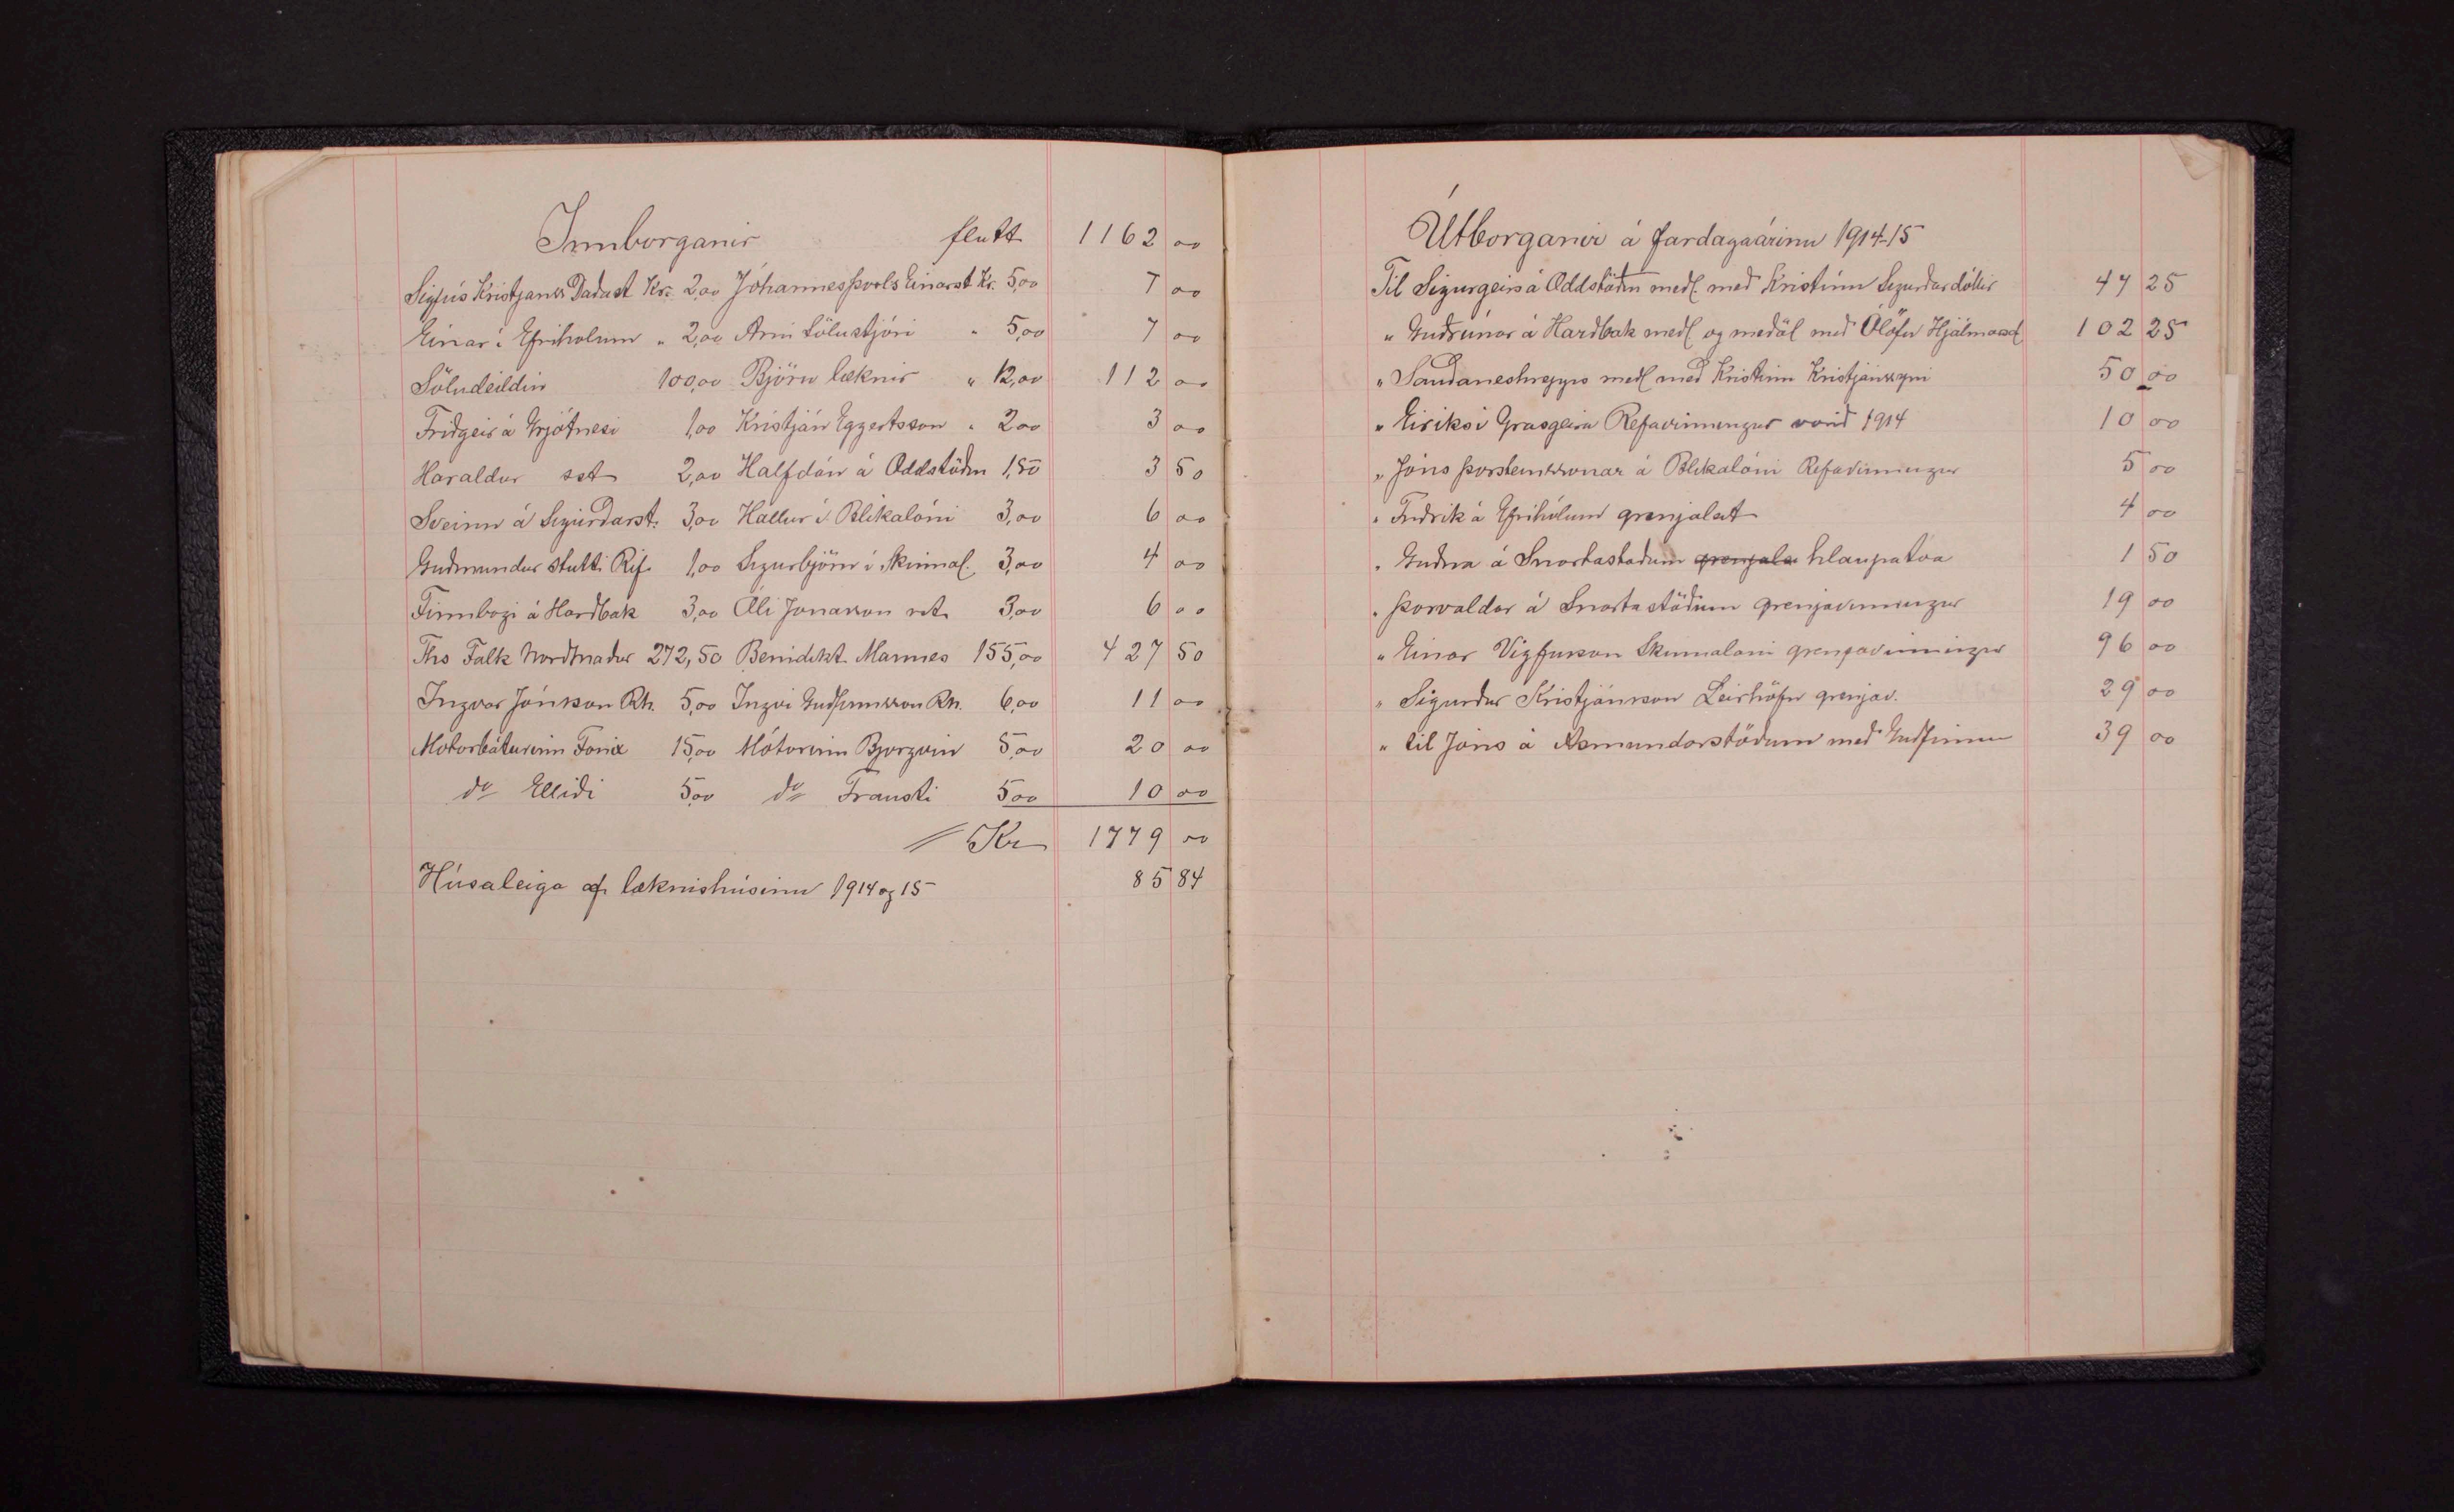 Innborganir flutt 1162 00
Sigfús Kristjanss Dadast Kr. 2,00 Jóhannes Þorls Einarst Kr. 5,00 7 00
Einar í Efriholum " 2,00 Arni Sölustjóri " 5,00 7 00
Söludeildin 100,00 Björn læknir " 12,00 112 00
Fridgeir á Grjótnesi 1,00 Kristján Eggertsson " 2,00 3 00
Haraldur sst 2,00 Halfdán á Oddstödm 1,50 3 50
Sveinn á Sigurdarst. 3,00 Hallur í Blikalóni 3,00 6 00
Gudmundur stutti Rif. 1,00 Sigurbjörn í Skinnal. 3,00 4 00
Finnbogi á Hardbak 3,00 Oli Jonasson 3,00 6 00
Ths Falk Nordmadur 272,50 Benidikt Mannes 155,00 427 50
Ingvar Jónsson Rh. 5,00 Ingvi Gudfinnsson Rh. 6,00 11 00
Motorbáturinn Fonix 15,00 Mótorinn Bjorgvin 5,00 20 00
do Ellidi 5,00 do Trausti 5,00 10 00
Kr 1779 00
Húsaleiga af læknishúsinu 1914 og 15 85 84
Útborganir á fardagaárinu 1914-15
Til Sigurgeirs á Oddstödm medl. med Kristínu Sigurdardóttir 44 25
" Gudrúnar á Hardbak medl og medöl med Olöfu Hjálmarsd 102 25
" Saudaneshrepps medl med Kristinn Kristjánssyni 50 00
" Eiriks í Grasgeira Refavinningur vorid 1914 10 00
" Jóns Þorsteinssonar á Blikalóni Refavinningur 5 00
" Fridrik á Efrihólum grenjaleit 4 00
" Gudna á Snortastadum grenjale hlaupatoa 1 50
" Þorvaldar á Snartastödum grenjavinningur 19 00
" Einar Vigfusson Skinnalóni grenjavinningur 96 00
" Sigurdur Kristjánsson Leirhöfn grenjav. 29 00
" til Jóns á Asmundarstödum med Gudfinnu 39 00